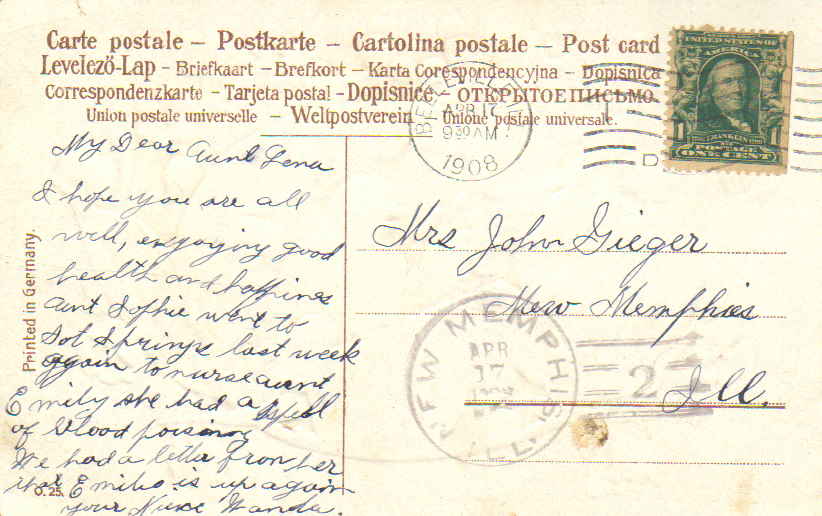 Carte postale – Postkarte – Cartolina postale – Post card
Levelező-Lap – Briefkaart – Brefkort – Karta Corespondencyjna – Dopisnica
Correspondenzkarte – Tarjeta postal – Dopisnice – ОТКРЫТОЕ ПИСЬМО.
Union postale universelle – Weltpostverein – Unione postale universale.
UNITED STATES OF
AMERICA
FRANKLIN
POSTAGE
1 ONE CENT
APR 17
9 30 AM
1908
My Dear Aunt Lena
I hope you are all
well, enjoying good
health and happines
Aunt Sophie went to
Hot Springs last week
again to nurse aunt
Emily she had a spell
of blood poisoning
We had a letter from her
that Emily is up again
your Niece Wanda.
Mrs John Gieger
New Memphies
Ill.
NEW MEMPHIS
APR
17
1908
ILL.
2
Printed in Germany.
O. 25.